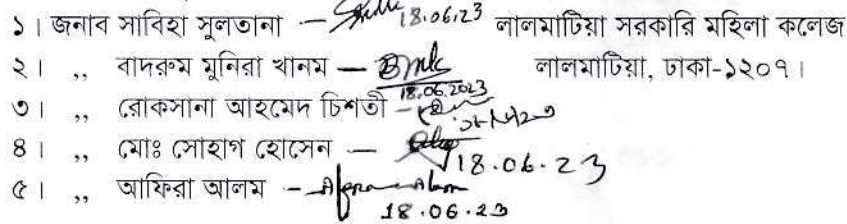 ১। জনাব সাবিহা সুলতানা — 18.06.23 লালমাটিয়া সরকারি মহিলা কলেজ
২। ,, বাদরুম মুনিরা খানম — 18.06.2023 লালমাটিয়া, ঢাকা-১২০৭।
৩। ,, রোকসানা আহমেদ চিশতী -
৪। ,, মোঃ সোহাগ হোসেন — 18.06.23
৫। ,, আফিরা আলম - Afira Alam 18.06.23